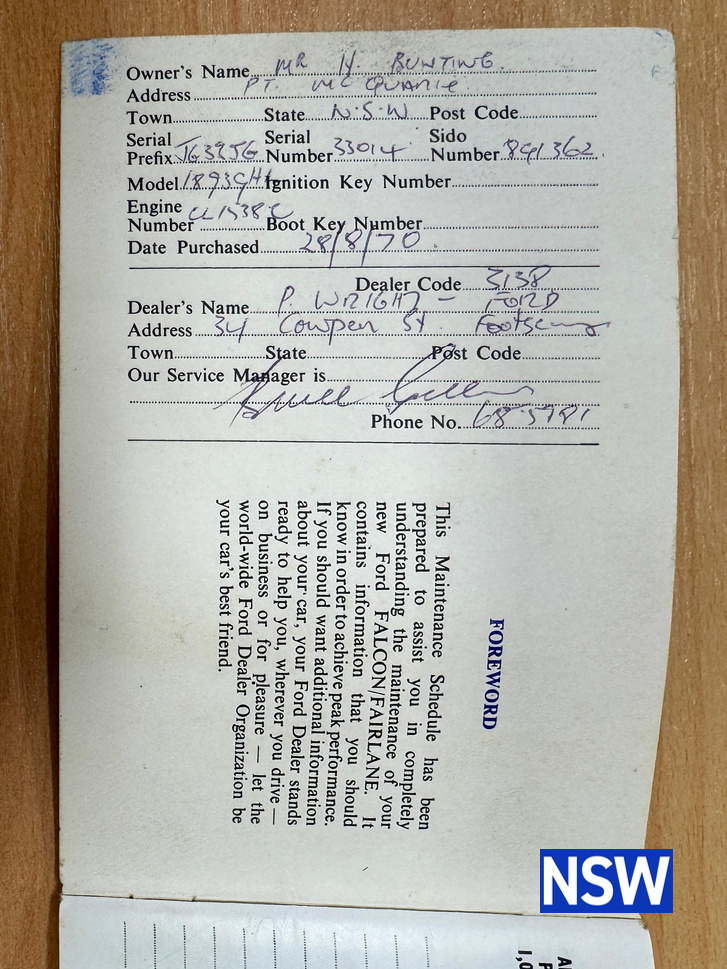 Owner's Name MR H. BUNTING
Address PT. McQUARIE
Town State N.S.W Post Code
Serial Serial Sido
Prefix JG33JG Number 33014 Number 891362
Model 18939H Ignition Key Number
Engine
Number Boot Key Number
Date Purchased 28/8/70
Dealer Code 3138
Dealer's Name P. WRIGHT - FORD
Address 34 Cowper St. Footscray
Town State Post Code
Our Service Manager is
Phone No. 68 5781
FOREWORD
This Maintenance Schedule has been
prepared to assist you in completely
understanding the maintenance of your
new Ford FALCON/FAIRLANE. It
contains information that you should
know in order to achieve peak performance.
If you should want additional information
about your car, your Ford Dealer stands
ready to help you, wherever you drive —
on business or for pleasure — let the
world-wide Ford Dealer Organization be
your car's best friend.
NSW